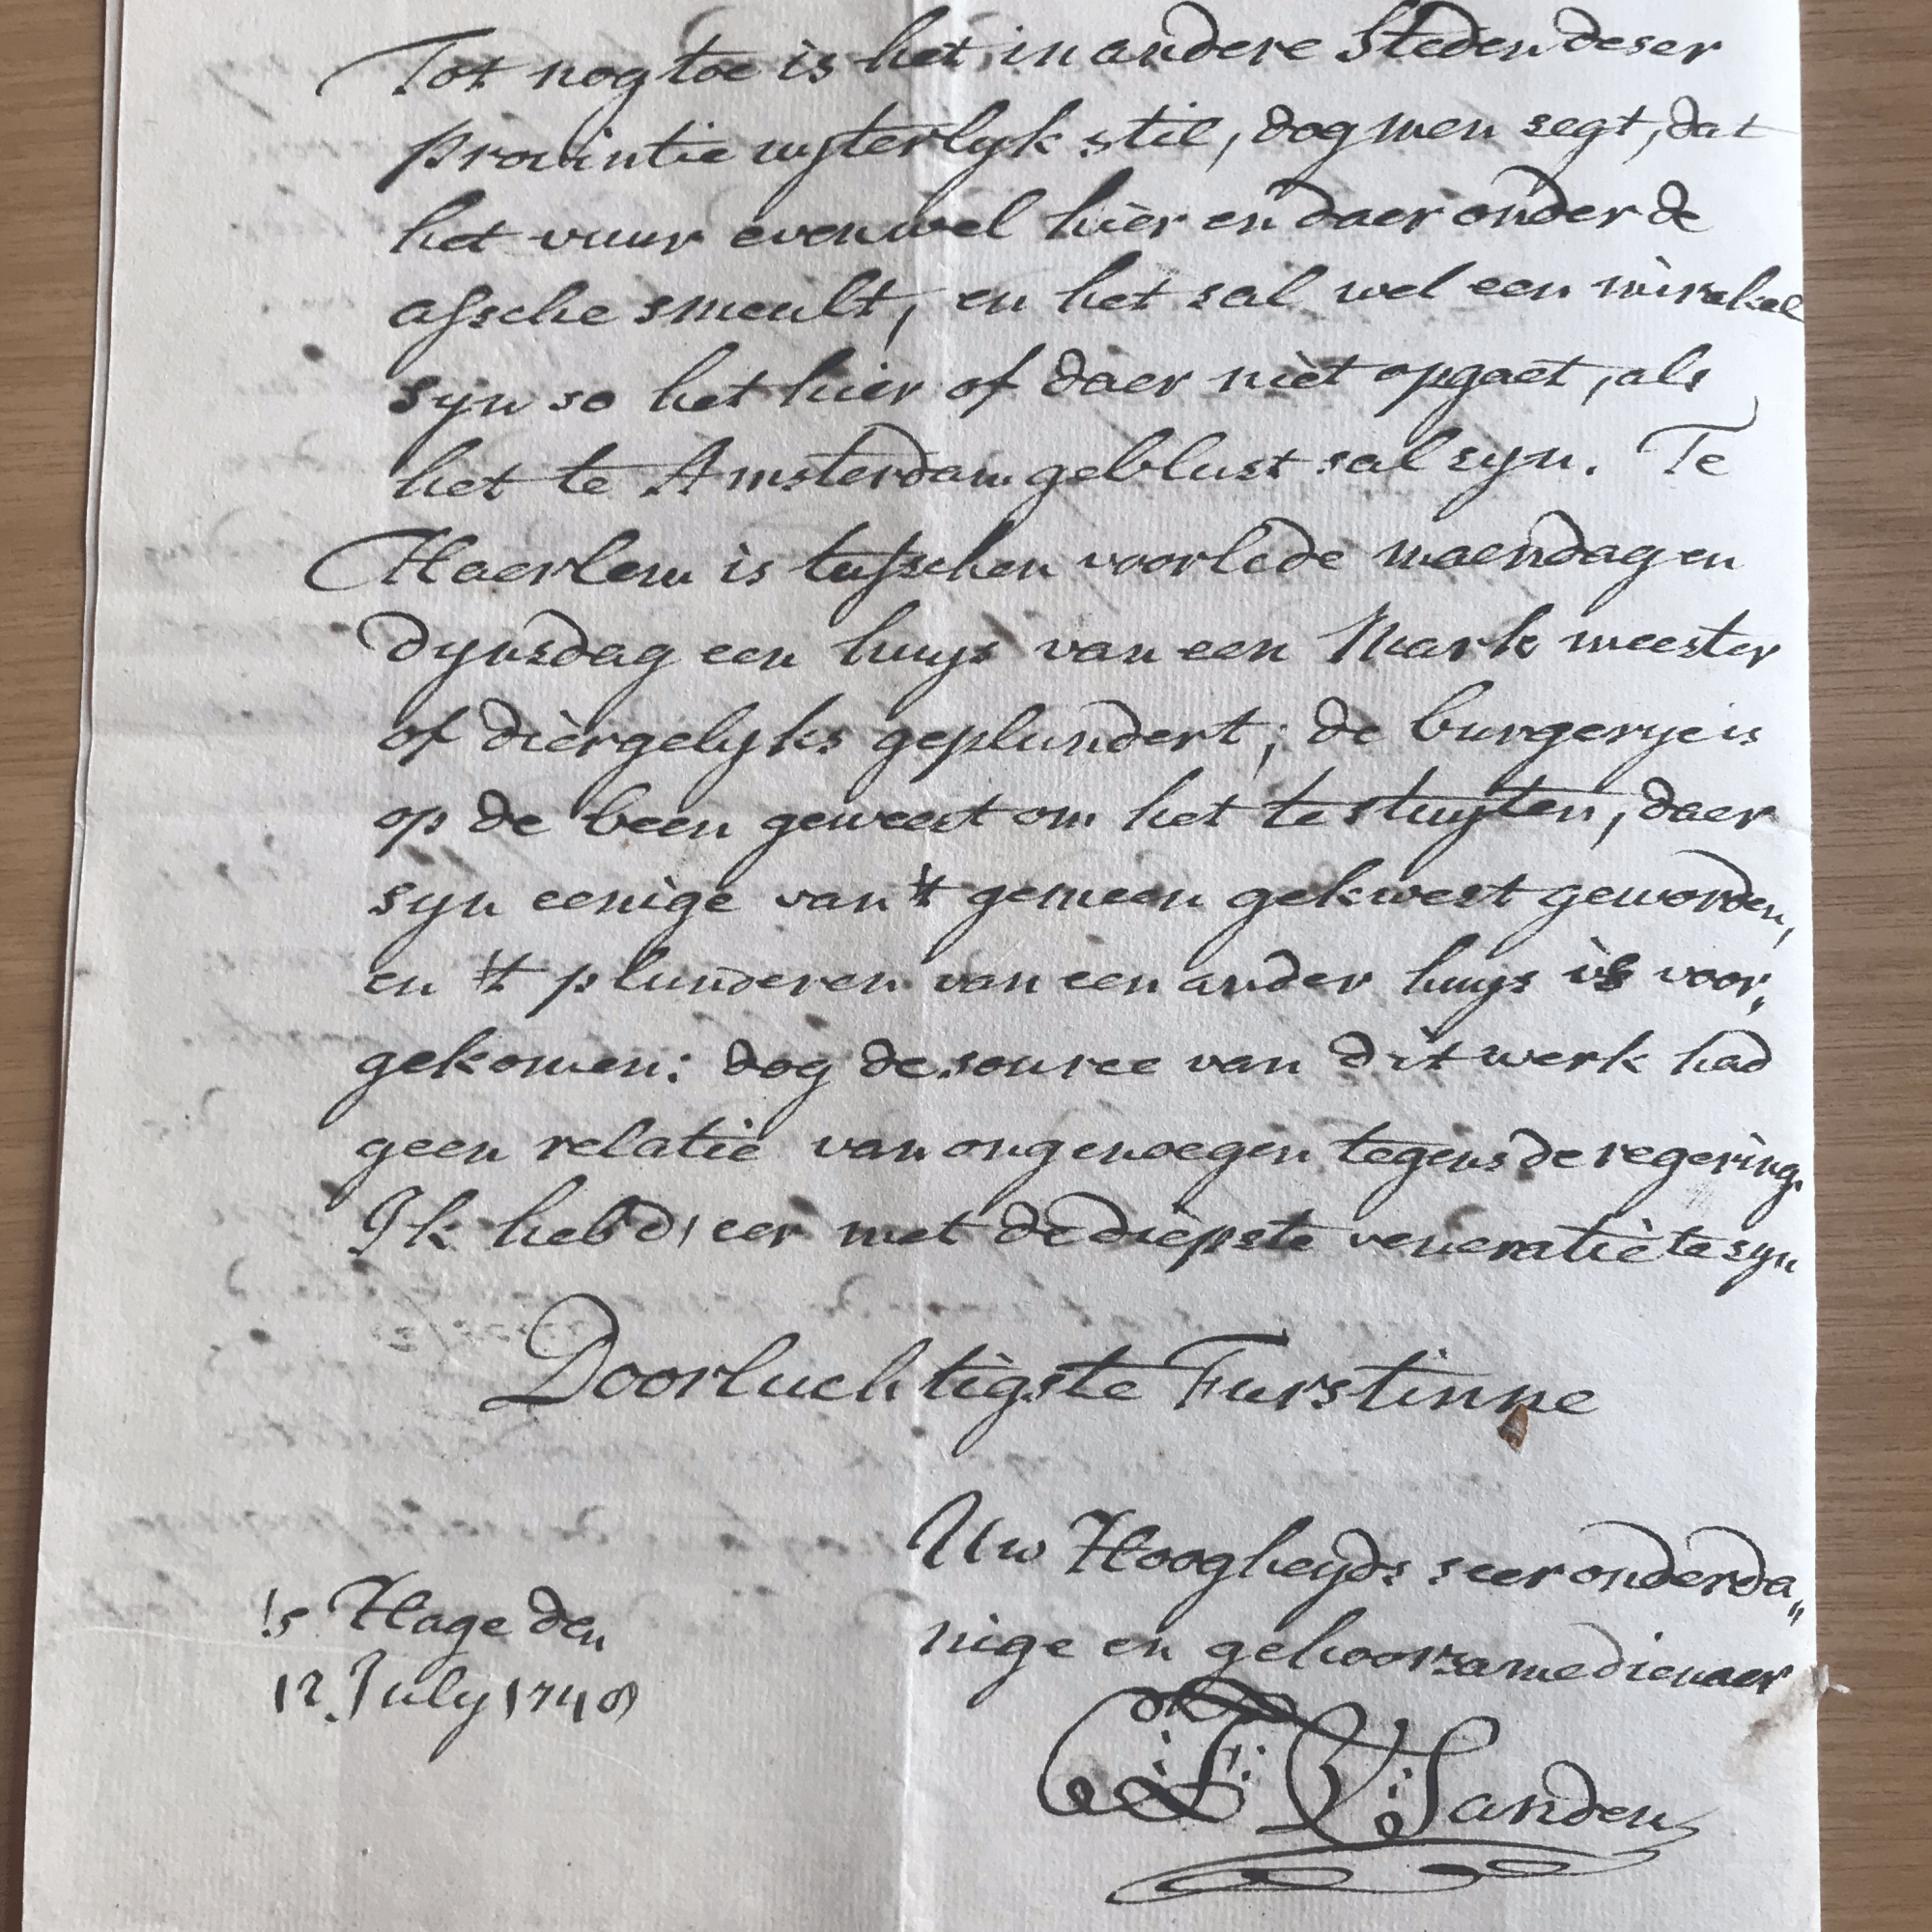 Tot nog toe is het in andere Steden deser
provintie uyterlyk stil, dog men segt, dat
het vuur evenwel hier en daer onder de
assche smeult, en het sal wel een mirakel
syn so het hier of daer niet opgaet, als
het te Amsterdam geblust sal syn. Te
Haerlem is tusschen voorlede maendag en
dynsdag een huys van een Mark meester
of diergelyks geplundert; de burgerye is
op de been geweest om het te stuyten, daer
syn eenige van 't gemeen gekwest geworden,
en 't plunderen van een ander huys is voor„
gekomen: dog de source van dit werk had
geen relatie van ongenoegen tegens de regering.
Ik heb d' eer met de diepste veneratie te syn
Doorluchtigste Furstinne
Uw Hoogheyds seer onderda„
nige en gehoorsame dienaer
's Hage den
12 July 1748
F: V: Sanden